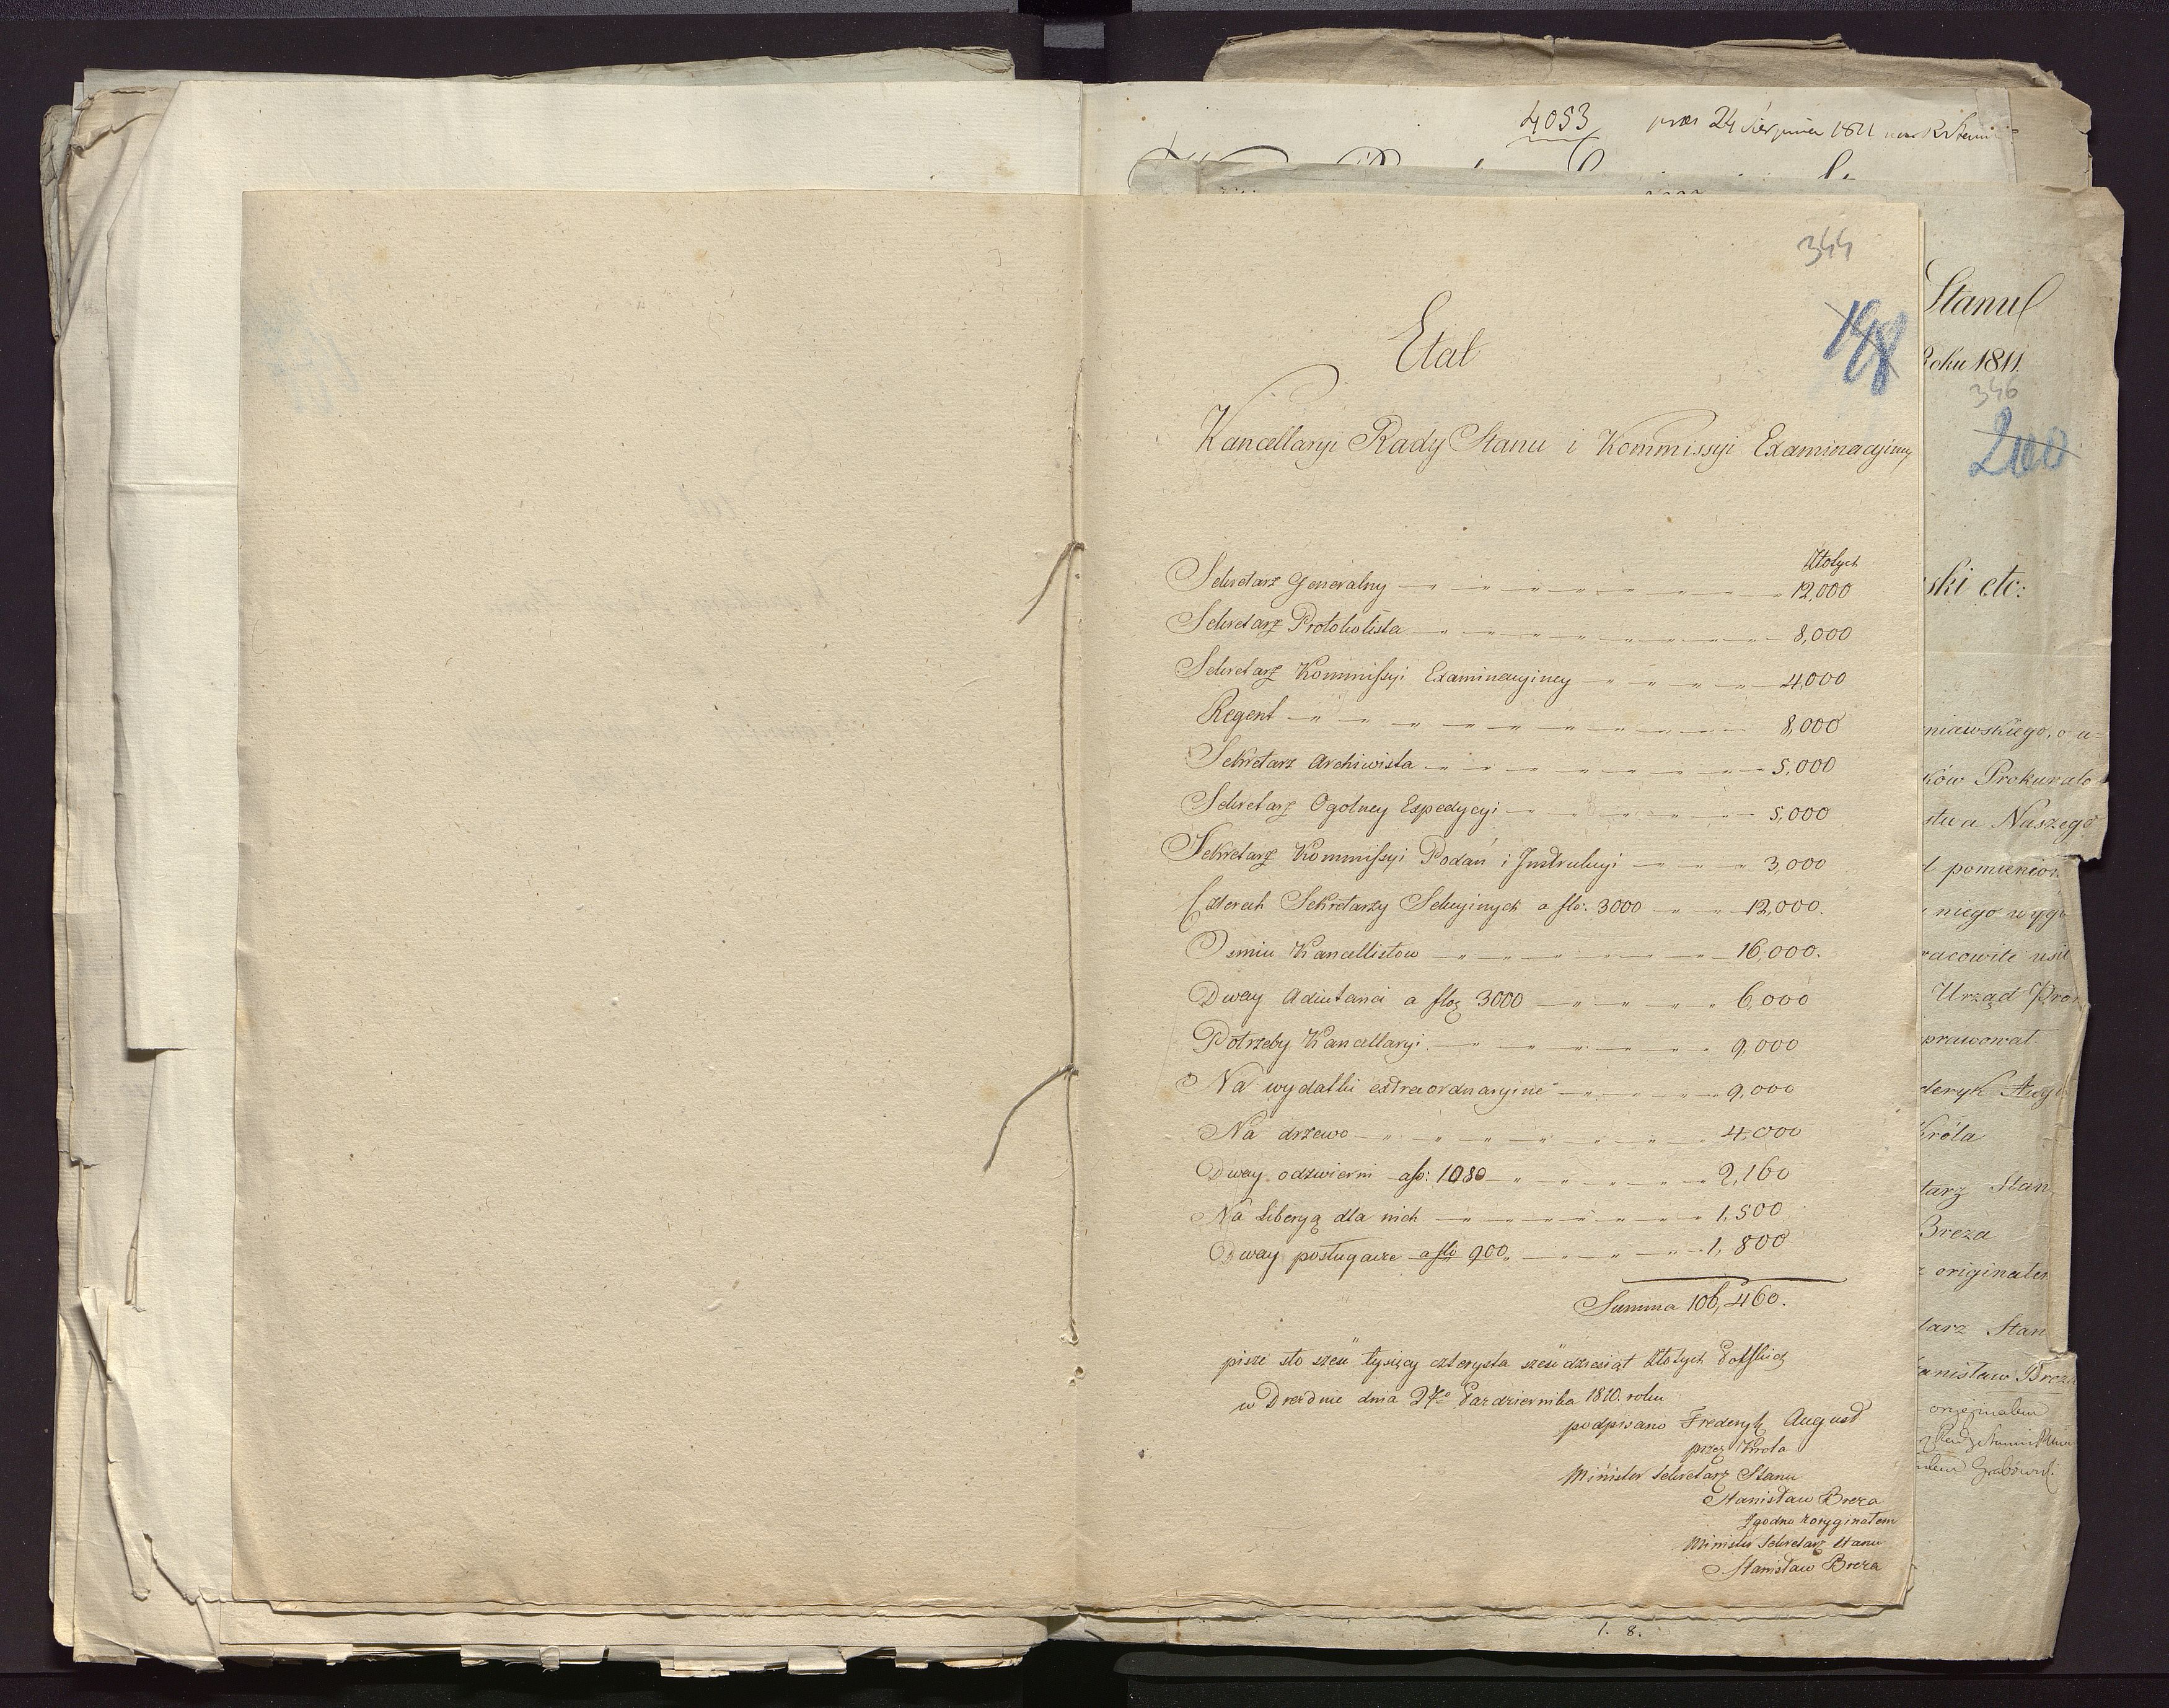 4053
24 Sierpnia 1811
344
198
Etat
Kancellaryi Rady Stanu i Kommissyi Examinacyiney
Złotych
Sekretarz Generalny 12,000
Sekretarz Protokolista 8,000
Sekretarz Kommissyi Examinacyiney 4,000
Regent 8,000
Sekretarz Archiwista 5,000
Sekretarz Ogolney Expedycyi 5,000
Sekretarz Kommissyi Podań i Instrukcyi 3,000
Czterech Sekretarzy Sekcyinych a flo: 3000 12,000.
Osmiu Kancellistow 16,000.
Dway Adiutanci a floz 3000 6,000
Potrzeby Kancellaryi 9,000
Na wydatki extraordynaryine 9,000
Na drzewo 4,000
Dway odzwierni a fo: 1080 2,160
Na Liberyą dla nich 1,500
Dway posługacze a flo 900 1,800
Summa 106,460.
pisze sto sześć tysięcy czterysta sześćdziesiąt Złotych Polskich
w Dreźnie dnia 27o Pazdziernika 1810. roku
podpisano Fryderyk August
przez Krola
Minister Sekretarz Stanu
Stanisław Breza
Zgodno z oryginałem
Minister Sekretarz Stanu
Stanisław Breza
Stanu
Roku 1811.
346
200
ski etc:
niawskiego, o u=
ków Prokurato
stwa Naszego
pomienion
niego wyg
racowite usi
Urząd Pro
prawował.
deryk Aug
Króla
tarz Stan
Breza
originałem
tarz Stan
anisław Breza
originałem
Grabowski
1. 8.